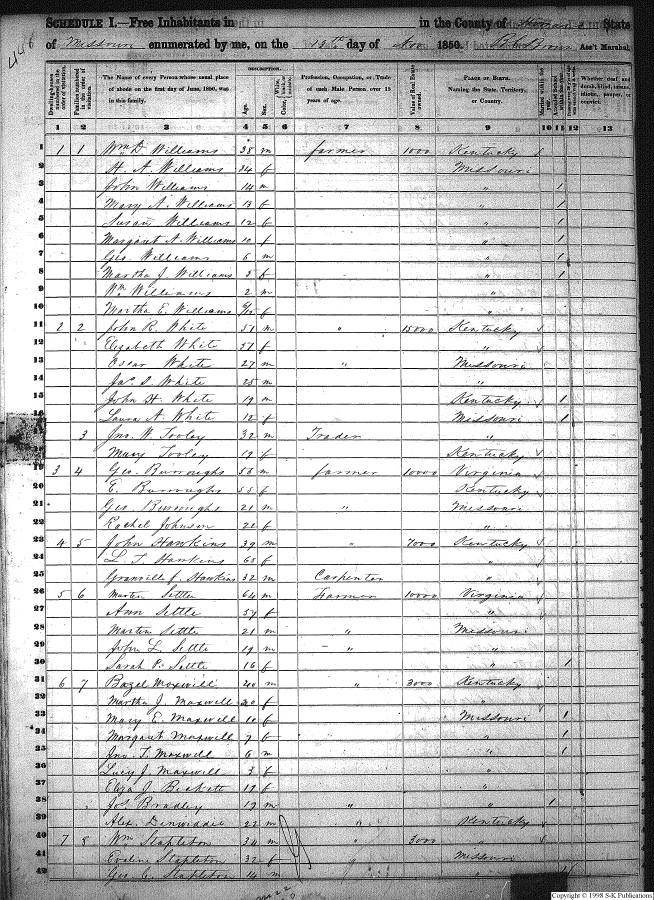 446
SCHEDULE I.—Free Inhabitants in in the County of State
of Missouri enumerated by me, on the 15th day of Nov 1850. Ass't Marshal.
Dwelling-houses numbered in the order of visitation.
Families numbered in the order of visitation.
The Name of every Person whose usual place of abode on the first day of June, 1850, was in this family.
DESCRIPTION.
Age.
Sex.
Color,
Profession, Occupation, or Trade of each Male Person over 15 years of age.
Value of Real Estate owned.
PLACE OF BIRTH. Naming the State, Territory, or Country.
Married within the year.
Attended School within the year.
Whether deaf and dumb, blind, insane, idiotic, pauper, or convict.
1 2 3 4 5 6 7 8 9 10 11 12 13
1 1 1 Wm D Williams 38 m farmer 1000 Kentucky
2 H. A. Williams 34 f Missouri
3 John Williams 14 m " 1
4 Mary A. Williams 13 f " 1
5 Susan Williams 12 f " 1
6 Margaret A. Williams 10 f " 1
7 Geo. Williams 6 m " 1
8 Martha J Williams 5 f " 1
9 Wm Williams 2 m "
10 Martha E. Williams f "
11 2 2 John R. White 51 m " 15000 Kentucky
12 Elizabeth White 51 f "
13 Oscar White 27 m " Missouri
14 Jas S. White 25 m "
15 John H. White 19 m Kentucky 1
16 Laura A. White 12 f Missouri 1
17 3 Jno. W. Tooley 32 m Trader "
18 Mary Tooley 19 f Kentucky
19 3 4 Geo. Burroughs 56 m farmer 10000 Virginia
20 E. Burroughs 55 f Kentucky
21 Geo Burroughs 21 m " Missouri
22 Rachel Johnson 22 f "
23 4 5 John Hawkins 39 m " 7000 Kentucky
24 L. T. Hawkins 65 f "
25 Granville f. Hawkins 32 m Carpenter "
26 5 6 Martin Settle 64 m Farmer 10000 Virginia
27 Ann Settle 57 f "
28 Martin Settle 21 m " Missouri
29 John L. Settle 19 m " "
30 Sarah P. Settle 16 f " 1
31 6 7 Bazel Maxwell 40 m " 3000 Kentucky
32 Martha J. Maxwell 30 f "
33 Mary E. Maxwell 10 f Missouri 1
34 Margaret Maxwell 9 f " 1
35 Jno. T. Maxwell 6 m " 1
36 Lucy J. Maxwell 3 f "
37 Eliza J Beckett 19 f "
38 Jos Bradley 19 m " " 1
39 Alex. Dinwiddie 22 m " Kentucky
40 7 8 Wm Stapleton 34 m " 3000 "
41 Eveline Stapleton 32 f Missouri
42 Geo C. Stapleton 14 m " 1
Copyright © 1998 S-K Publications